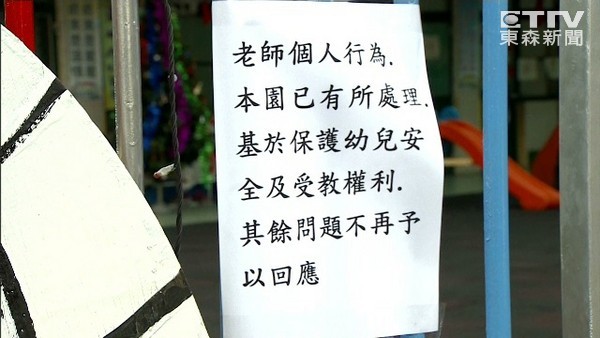 ETtV
東森新聞
老師個人行為.
本園已有所處理.
基於保護幼兒安
全及受教權利.
其餘問題不再予
以回應